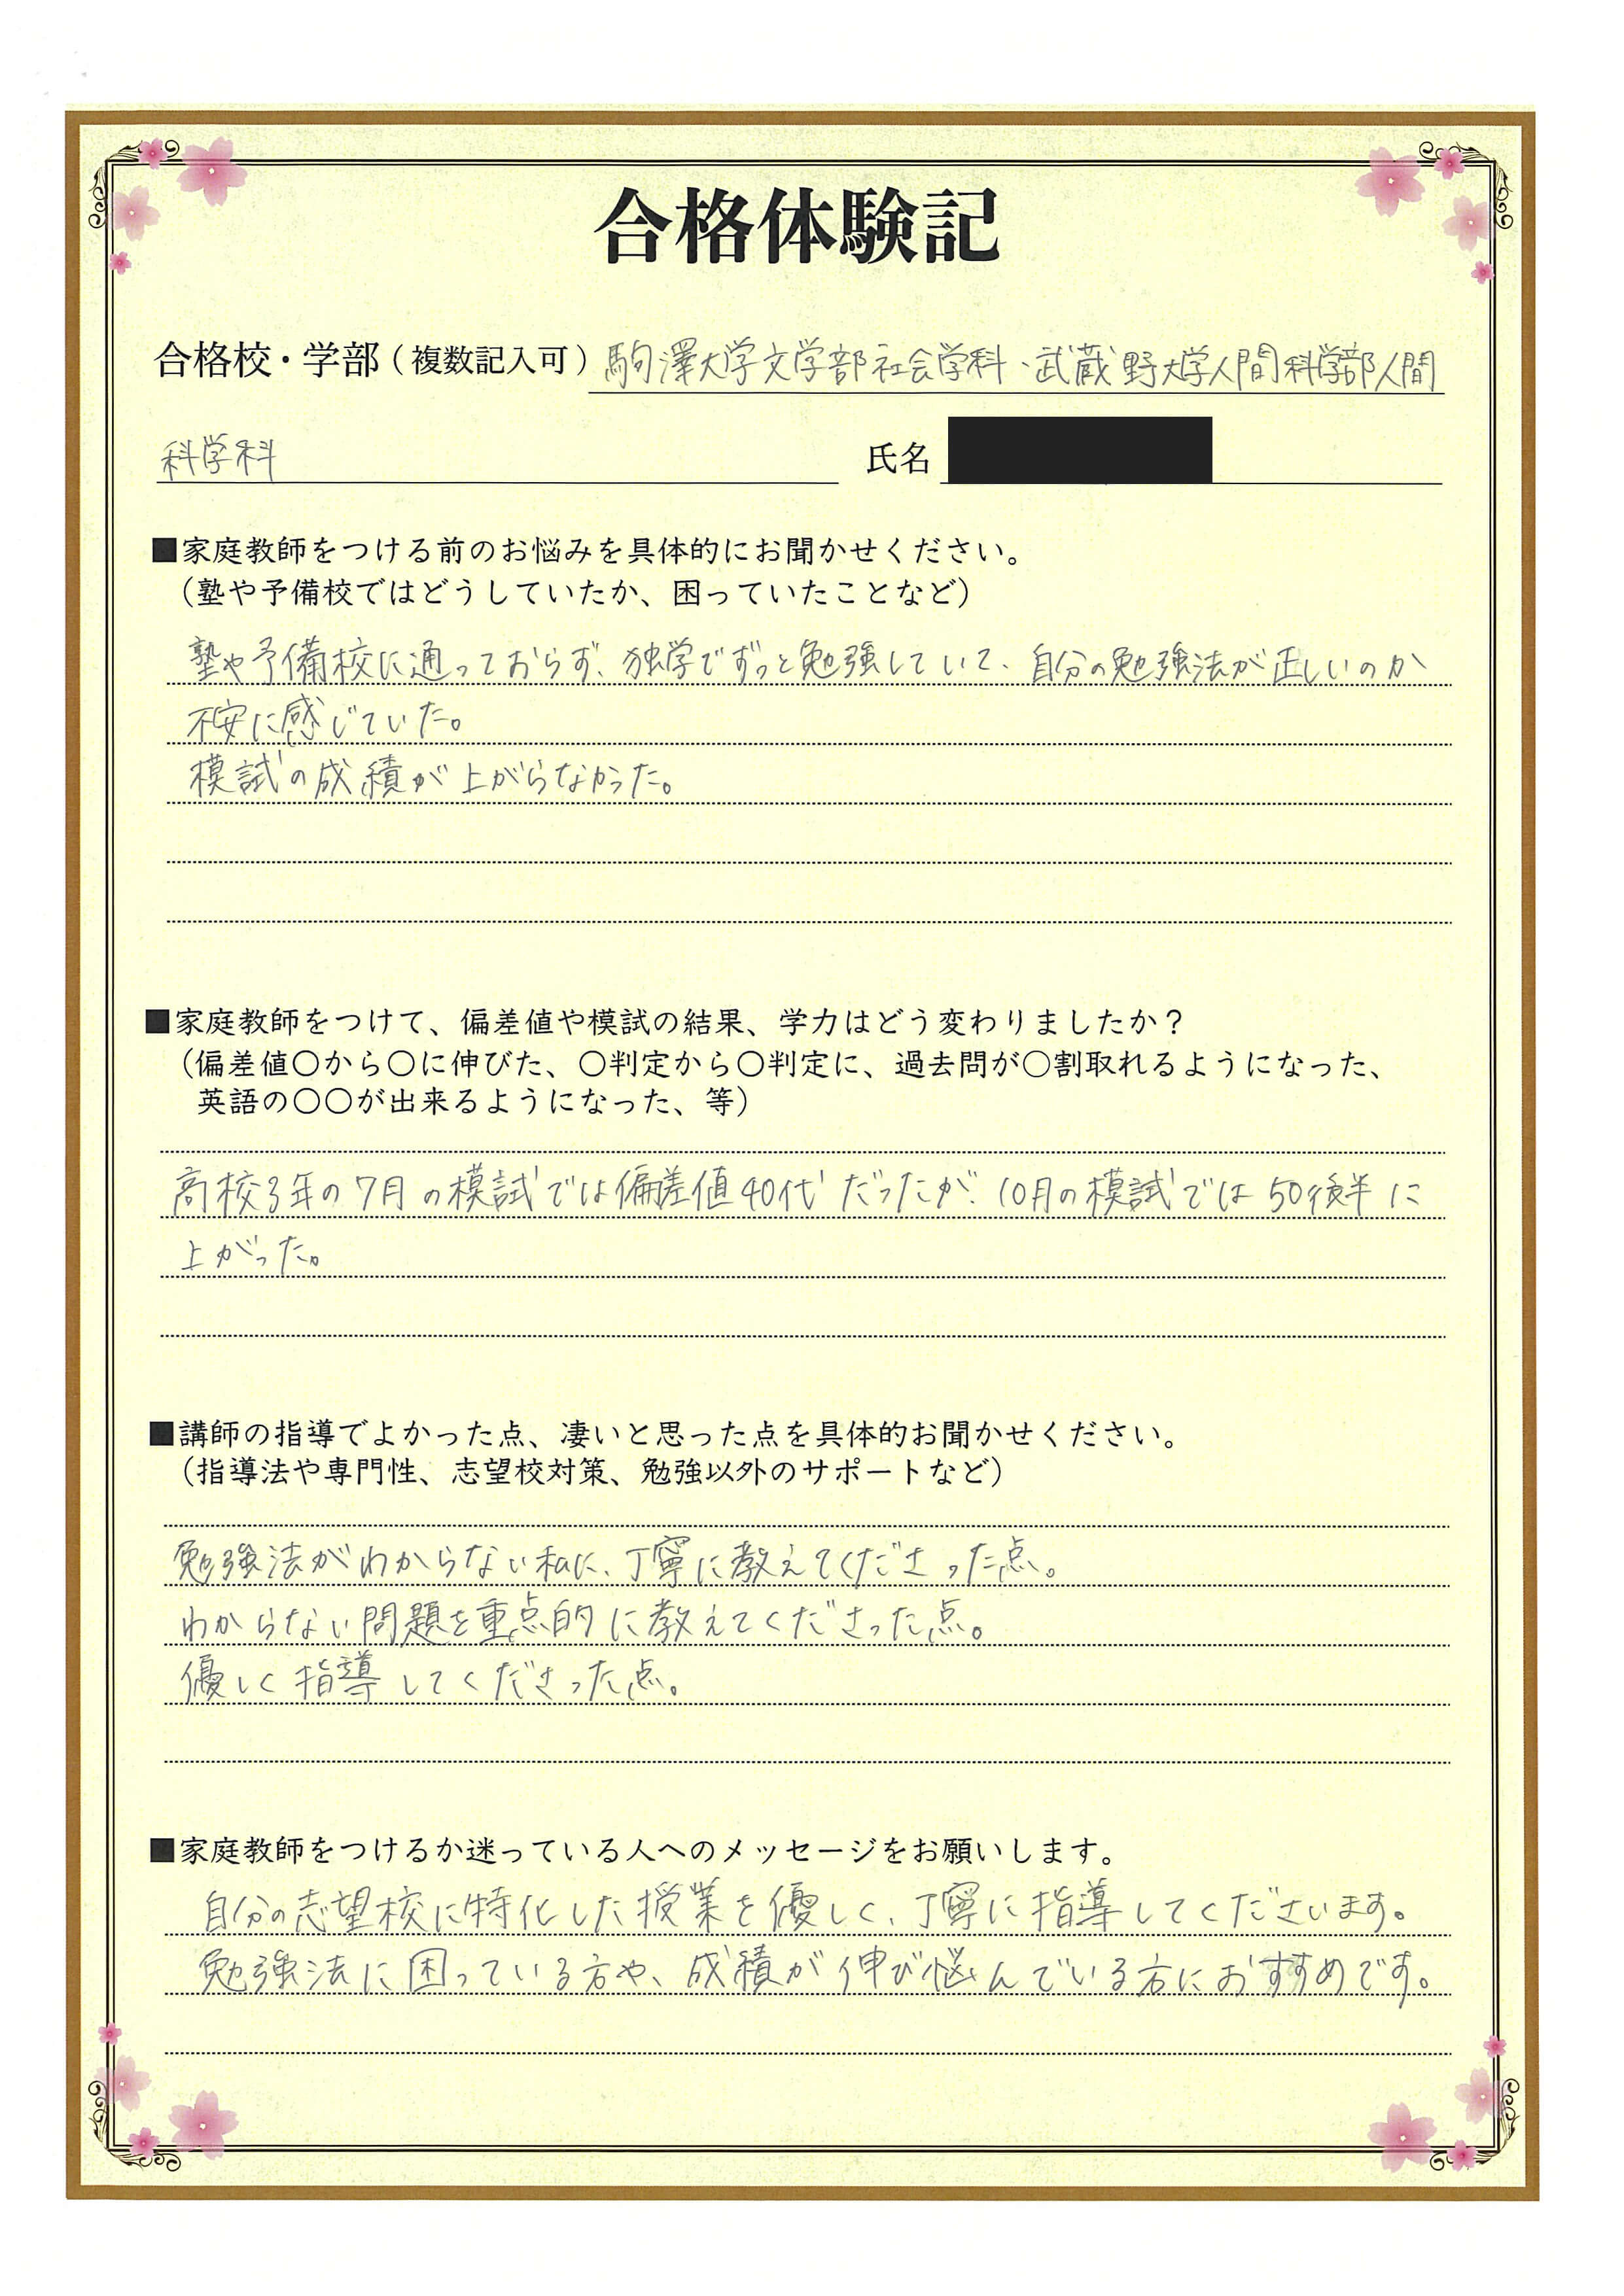 合格体験記
合格校・学部（複数記入可）駒澤大学文学部社会学科・武蔵野大学人間科学部人間
科学科 氏名
■家庭教師をつける前のお悩みを具体的にお聞かせください。
（塾や予備校ではどうしていたか、困っていたことなど）
塾や予備校に通っておらず、独学でずっと勉強していて、自分の勉強法が正しいのか
不安に感じていた。
模試の成績が上がらなかった。
■家庭教師をつけて、偏差値や模試の結果、学力はどう変わりましたか？
（偏差値〇から〇に伸びた、〇判定から〇判定に、過去問が〇割取れるようになった、
英語の〇〇が出来るようになった、等）
高校3年の7月の模試では偏差値40代だったが、10月の模試では50後半に
上がった。
■講師の指導でよかった点、凄いと思った点を具体的お聞かせください。
（指導法や専門性、志望校対策、勉強以外のサポートなど）
勉強法がわからない私に、丁寧に教えてくださった点。
わからない問題を重点的に教えてくださった点。
優しく指導してくださった点。
■家庭教師をつけるか迷っている人へのメッセージをお願いします。
自分の志望校に特化した授業を優しく、丁寧に指導してくださいます。
勉強法に困っている方や、成績が伸び悩んでいる方におすすめです。